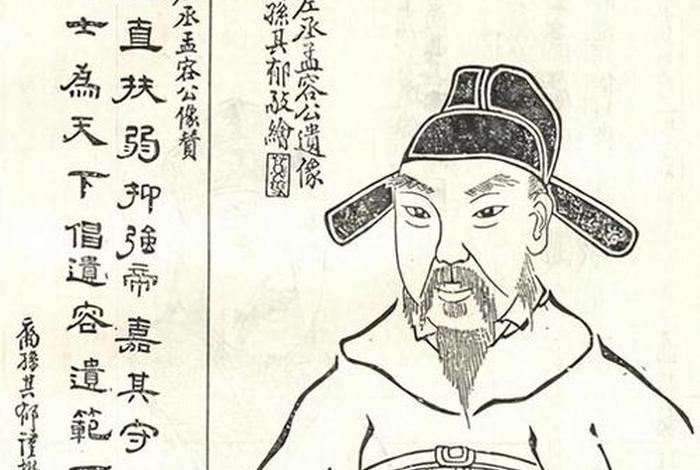 左丞孟容公遺像
孫其郁敬繪
丞孟容公像贊
直扶弱抑強帝嘉其守
士為天下倡遺容遺範
裔孫其郁謹